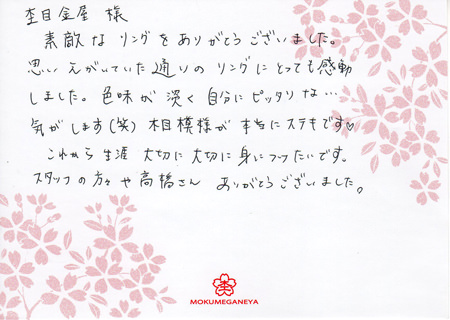 杢目金屋 様
素敵な リングを ありがとう ございました。
思い えがいていた 通りの リングに とっても 感動
しました。色味が 淡く 自分に ピッタリ な…
気がします(笑) 木目模様が 本当に ステキです♡
これから 生涯 大切に 大切に 身に つけたいです。
スタッフの 方々 や 高橋さん ありがとう ございました。
杢
MOKUMEGANEYA